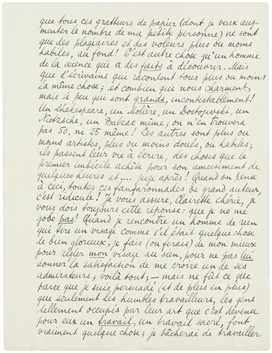 que tous, ces gratteurs de papier (dont je veux aug-
menter le nombre de ma petite personne) ne sont
que des plagiaires et des voleurs plus ou moins
habiles, au fond! C'est autre chose qu'un homme
de la science qui a des faits à découvrir. Mais
que d'écrivains qui racontent tous plus ou moins
la même chose; et combien qui nous charment,
mais si peu qui sont grands, incontestablement!
Un Shakespeare, un Molière, un Dostojewski, un
Nietzsche, un Balzac même; on n'en trouvera
pas 50, ni 25 même! Les autres sont plus ou
moins artistes, plus ou moins doués, ou habiles;
ils passent leur vie à écrire, des choses que le
premier imbécile achète pour son amusement de
quelques heures et.... juge après! Quand on pense
à ceci, toutes ces fanfaronnades de grand auteur,
c'est ridicule! Je vous assure, Clairette chérie, je
vous dois toujours cette réponse que je ne me
gobe pas! Quand je rencontre un homme de rien
qui tire un visage comme s'il était quelque chose
de bien glorieux, je fais (ou ferais) de mon mieux
pour régler mon visage au sien, pour ne pas lui
donner la satisfaction de me croire un de ses
admirateurs; voilà tout; — mais ne fût ce que
parce que je suis persuadé (et de plus en plus)
que seulement les humbles travailleurs, les gens
tellement occupés par leur art que c'est devenu
pour eux un travail, un travail sacré, font
vraiment quelque chose; je tâcherais de travailler